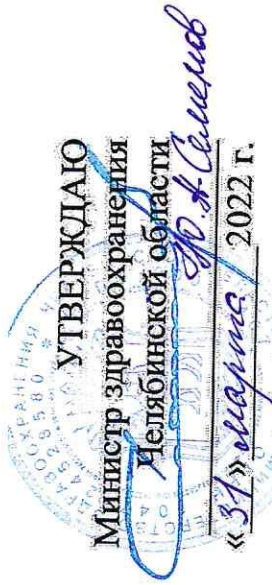 УТВЕРЖДАЮ
Министр здравоохранения
Челябинской области
Ю.А. Семенов
«31» марта 2022 г.